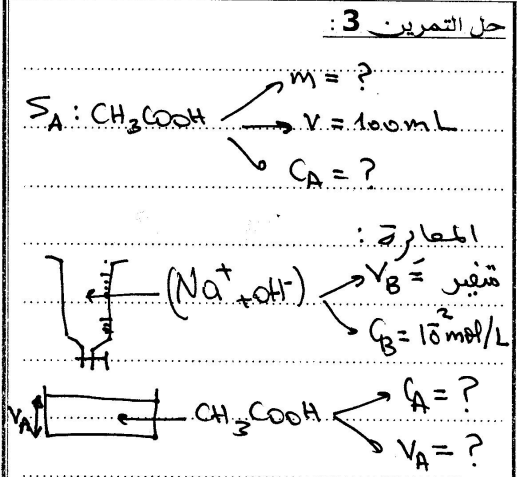 حل التمرين 3 :
m = ?
S_A : CH₃COOH → V = 100 mL
C_A = ?
المعايرة :
(Na⁺ + OH⁻) → V_B = متغير
C_B = 10⁻² mol/L
C_A = ?
V_A CH₃COOH
V_A = ?